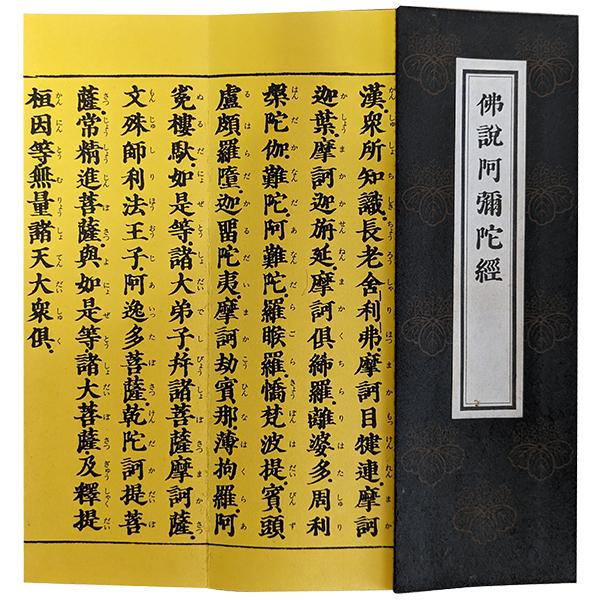 佛說阿彌陀經
漢、衆所知識、長老舍利弗、摩訶目犍連、摩訶
迦葉、摩訶迦旃延、摩訶俱絺羅、離婆多、周利
槃陀伽、難陀、阿難陀、羅睺羅、憍梵波提、賓頭
盧頗羅墮、迦畱陀夷、摩訶劫賓那、薄拘羅、阿
㝹樓馱、如是等、諸大弟子、幷諸菩薩摩訶薩、
文殊師利法王子、阿逸多菩薩、乾陀訶提菩
薩、常精進菩薩、與如是等、諸大菩薩、及釋提
桓因等、無量諸天大衆俱、